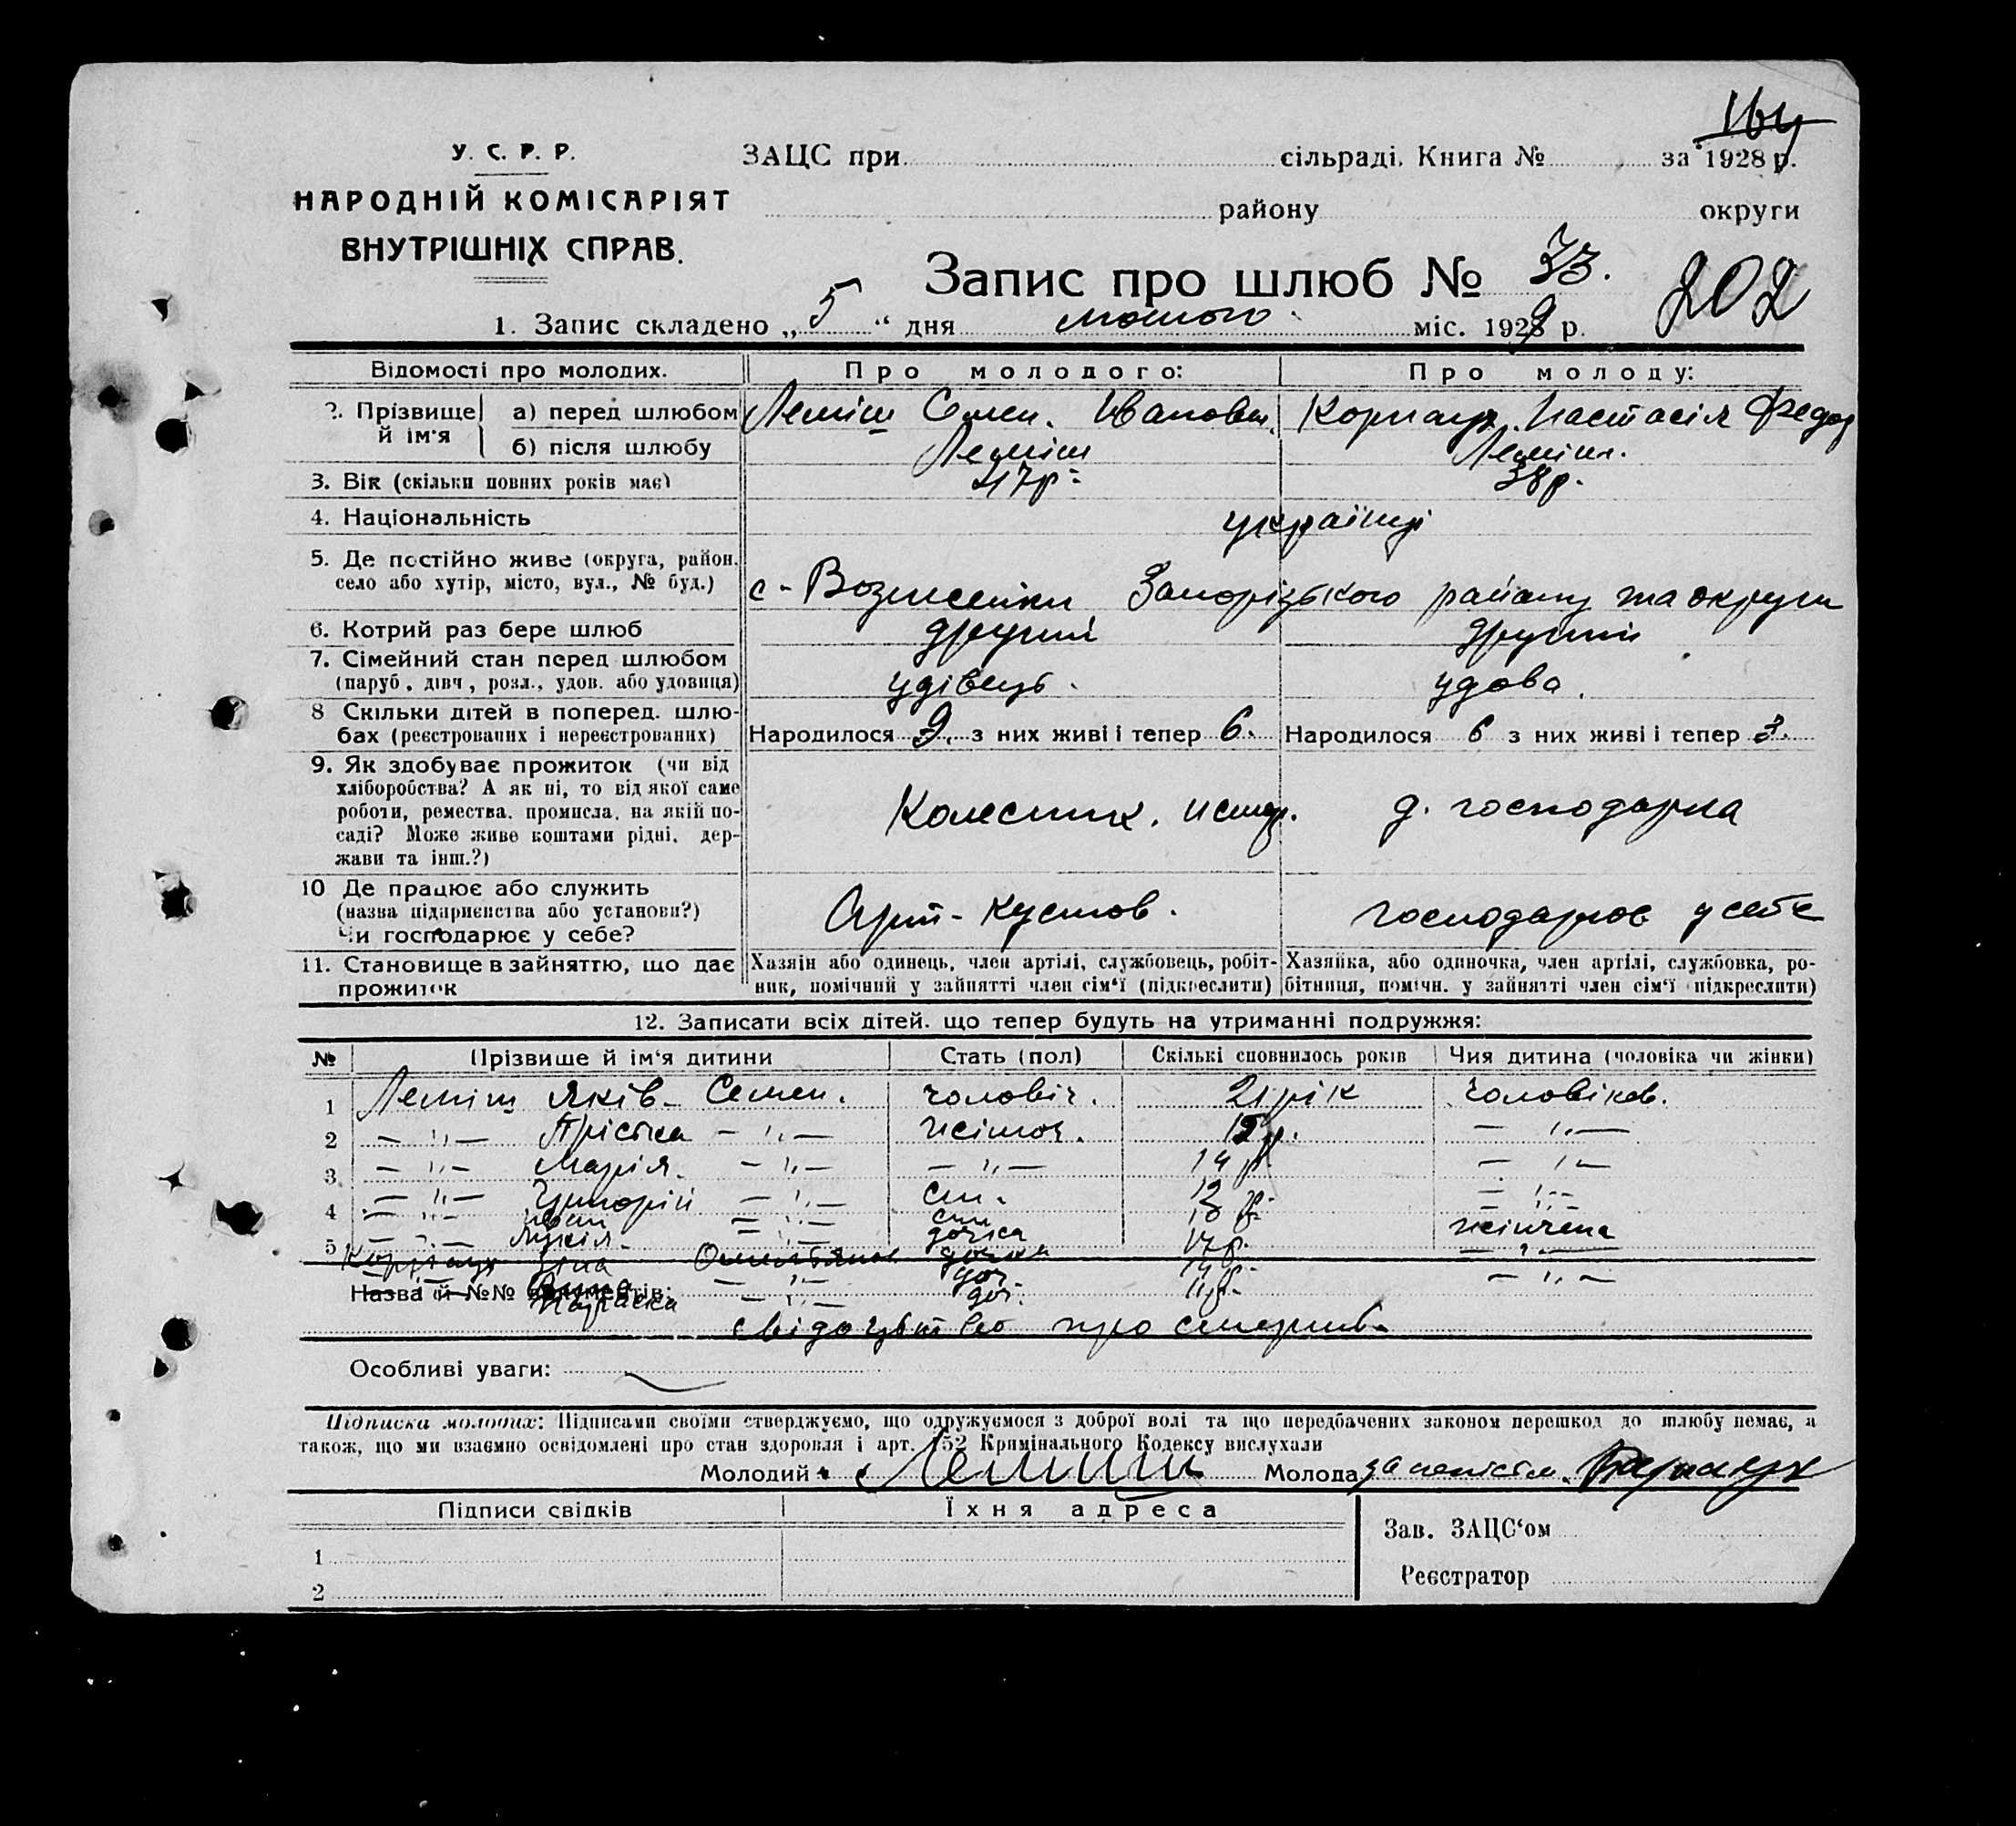 164
У. С. Р. Р.
НАРОДНІЙ КОМІСАРІЯТ
ВНУТРІШНІХ СПРАВ.
ЗАЦС при сільраді. Книга № за 1928 р.
району округи
Запис про шлюб № 33.
202
1. Запис складено „5“ дня лютого міс. 1929 р.
Відомості про молодих. Про молодого: Про молоду:
2. Прізвище й ім'я а) перед шлюбом Леміш Семен Іванович Настасія Федор
б) після шлюбу Леміш Леміш.
3. Вік (скільки повних років має) 47р. 38р.
4. Національність українці
5. Де постійно живе (округа, район, село або хутір, місто, вул., № буд.) с. Запорізького району та округи
6. Котрий раз бере шлюб другий другий
7. Сімейний стан перед шлюбом (паруб., дівч., розл., удов. або удовиця) удівець. удова.
8 Скільки дітей в поперед. шлюбах (реєстрованих і нереєстрованих) Народилося 9. з них живі і тепер 6. Народилося 6 з них живі і тепер 3.
9. Як здобуває прожиток (чи від хліборобства? А як ні, то від якої саме роботи, ремества, промисла, на якій посаді? Може живе коштами рідні, держави та інш.?) Колесник. д. господарка
10 Де працює або служить (назва підприємства або установи?) Чи господарює у себе? Арт. Кустов. господарює у себе
11. Становище в зайняттю, що дає прожиток Хазяїн або одинець, член артілі, службовець, робітник, помічний у зайнятті член сім‘ї (підкреслити) Хазяйка, або одиночка, член артілі, службовка, робітниця, помічн. у зайнятті член сім‘ї (підкреслити)
12. Записати всіх дітей, що тепер будуть на утриманні подружжя:
№ Прізвище й ім‘я дитини Стать (пол) Скількі сповнилось років Чия дитина (чоловіка чи жінки)
1 Леміш Яків Семен. чоловіч. 21 рік чоловіков.
2 — „ — Прісіка — „ — жіноч. — „ —
3 — „ — Марія — „ — — „ — 14 р. — „ —
4 — „ — Григорій — „ — син. — „ —
— „ — — „ — син
5 — „ — дочка 17р. жінчена
дочка 14р. — „ —
Назва й №№ документів: — „ — доч. 11р. — „ —
Параска — „ — доч.
свідоцтво про смерть
Особливі уваги:
Підписка молодих: Підписами своїми стверджуємо, що одружуємося з доброї волі та що передбачених законом перешкод до шлюбу немає, а
також, що ми взаємно освідомлені про стан здоровля і арт. 152 Кримінального Кодексу вислухали
Молодий Леміш Молода
Підписи свідків Їхня адреса
1
2
Зав. ЗАЦС‘ом
Реєстратор